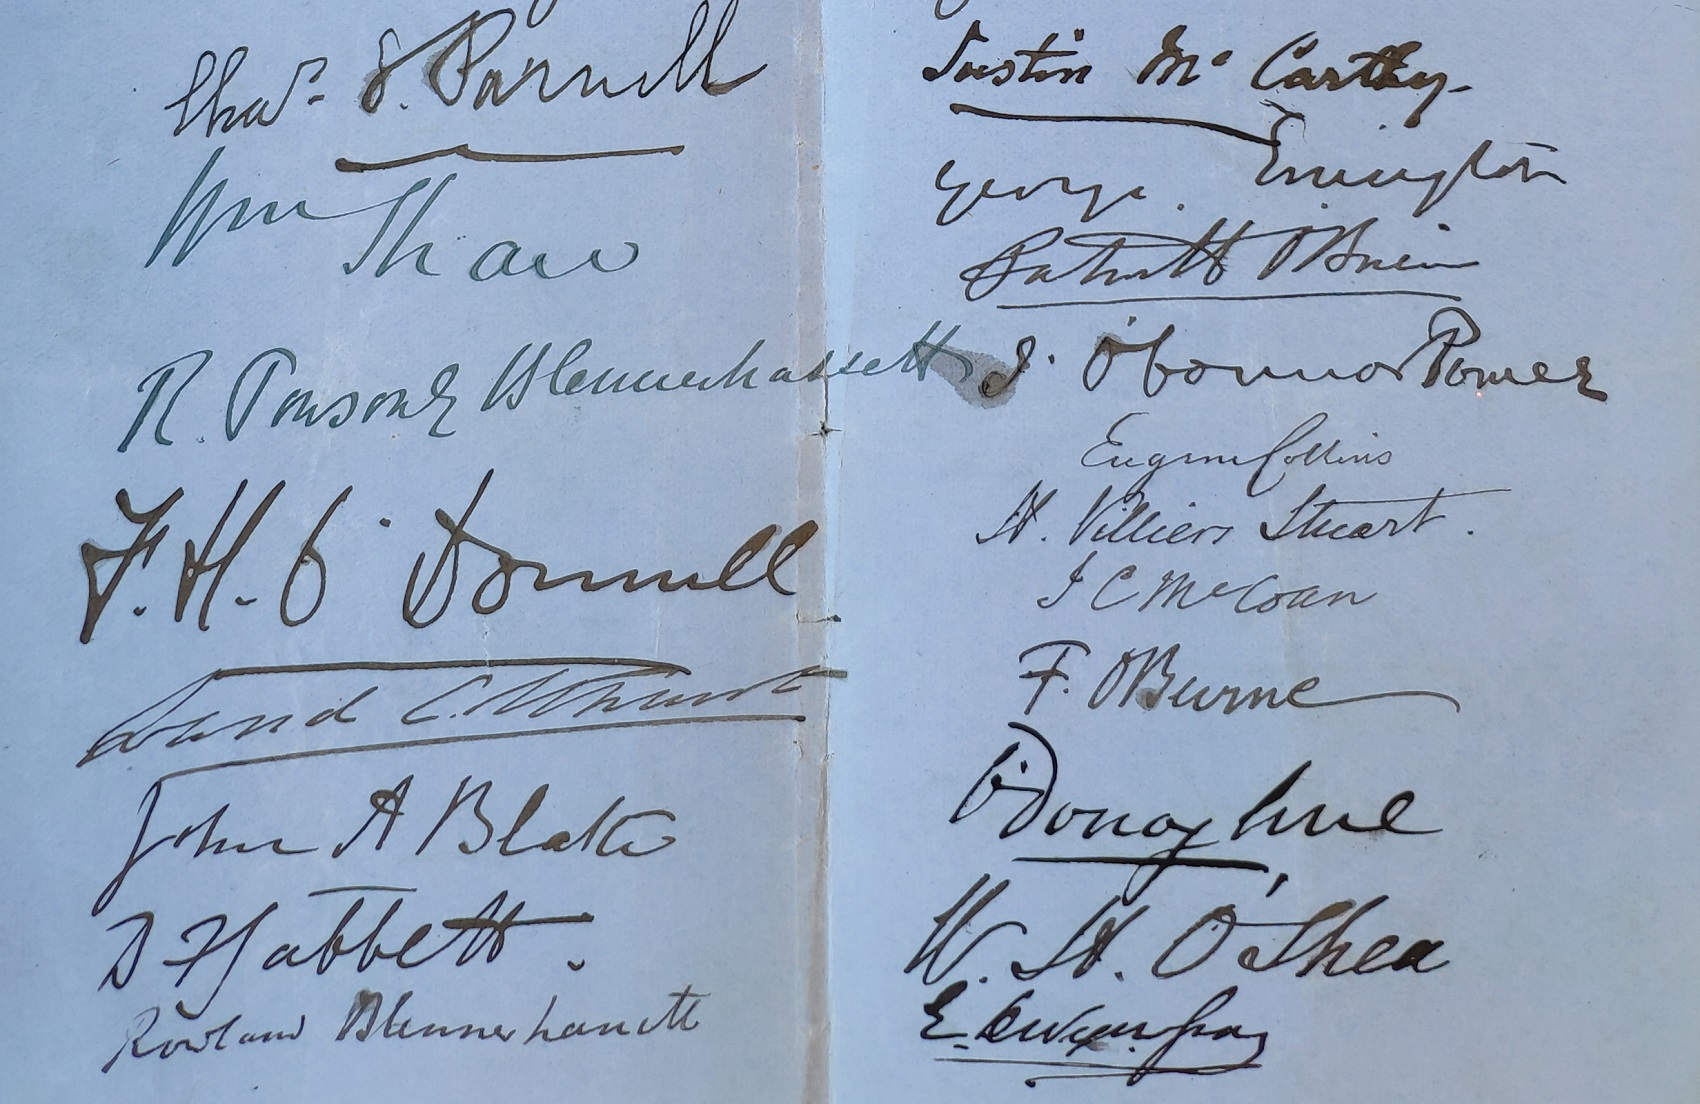 Chas. S. Parnell
Wm Shaw
R. Ponsonby Blennerhassett
F. H. O'Donnell
John A Blake
D F Gabbett.
Rowland Blennerhassett
Justin Mc Carthy.
George Errington
Patrick O'Brien
J. O'Connor Power
Eugene Collins
H. Villiers Stuart.
J C McCoan
F. O'Beirne
O'Donoghue
W. H. O'Shea
E. Dwyer Gray